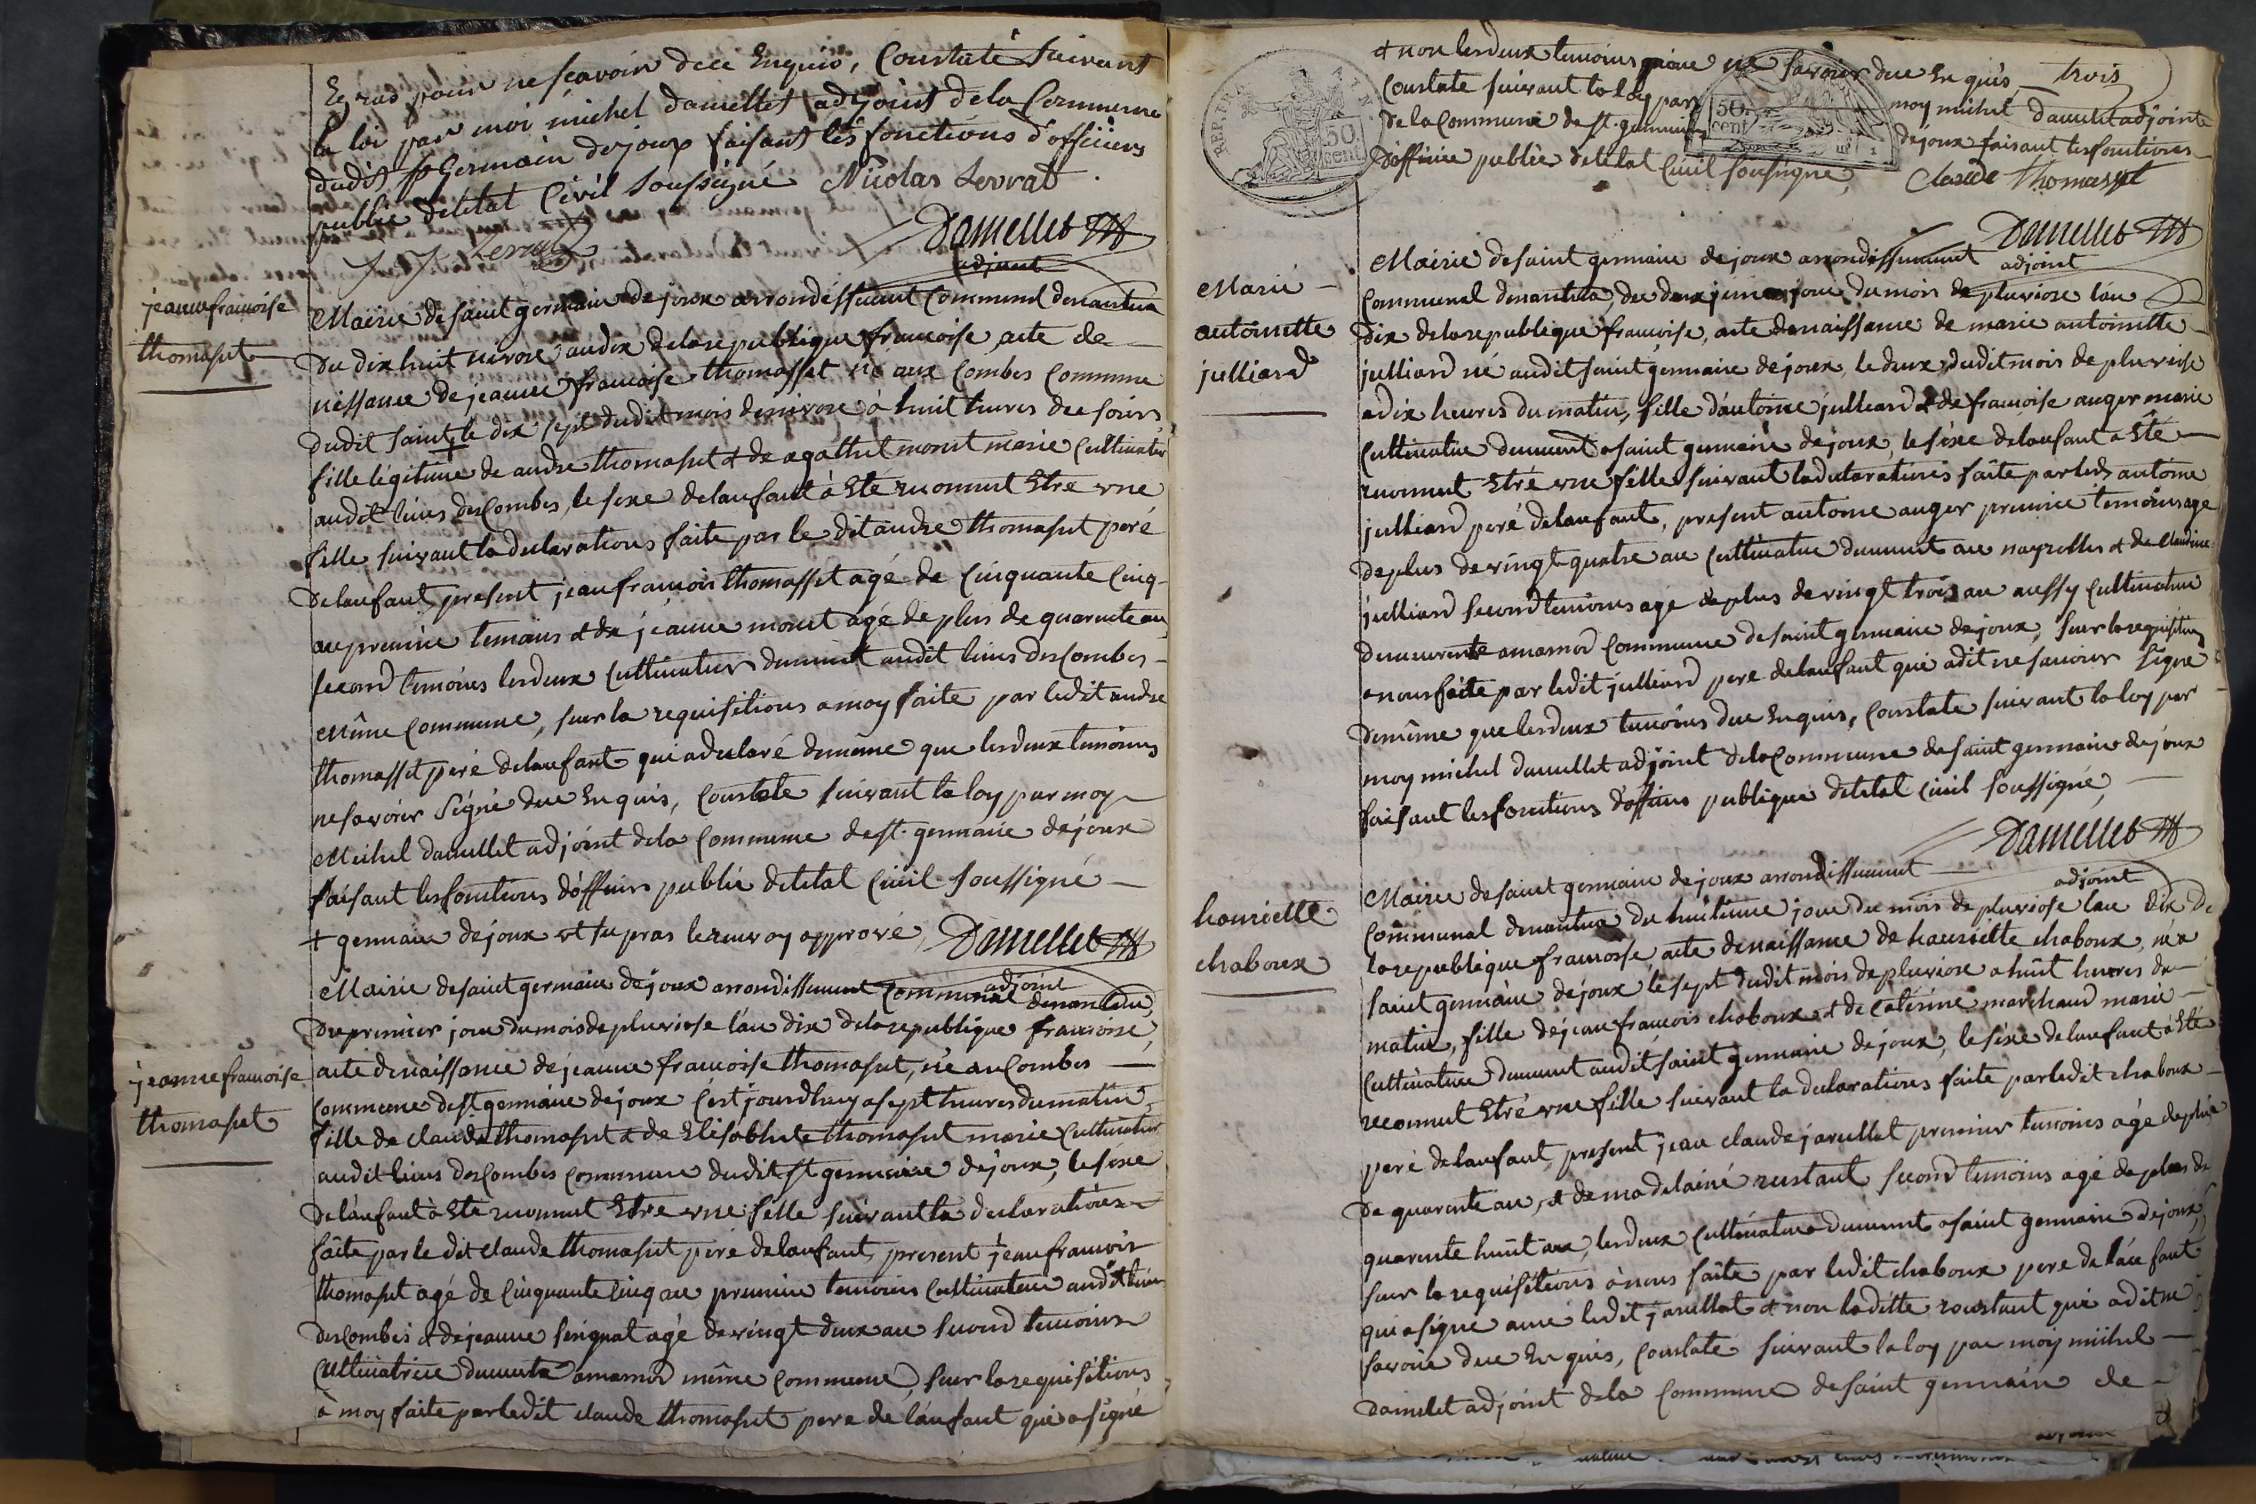 Egrad pour ne scavoir de ce Enquis, Constaté Suivant
la loi par moi michel damellet adjoint de la Commune
dudit St Germain dejoux faisant les fonctions d'officiers
public de letat Civil Soussigné Nicolas Levrat
J J Levrat
Damellet
adjoint
jeanne francoise
thomasset
Mairie de saint germain de joux arrondissement Communal denantua
du dix huit nivose an dix de la republique francoise acte de
nessance de jeanne francoise thomasset né aux Combes Commune
dudit saint + le dix sept dudit mois de nivose à huit heures du soirs
fille légitime de andre thomasset & de agathe monet marie Cultivateur
audit lieus des Combes, le sexe delanfant à Eté reconnut Etre une
fille suivant la declarations faite par le dit andre thomasset peré
delanfant, present jean francois thomasset agé de Cinquante Cinq
an premier temoins & de jeanne monet agé de plus de quarente an
second temoins les deux Cultivateurs demeurt audit lieus des Combes
même Commune, sur la requisitions a moy faite par ledit andre
thomasset peré delanfant qui a declaré de même que les deux temoins
ne savoirs Signé due Enquis, Constate suivant la loy par moy
Michel damellet adjoint de la Commune de st. germain dejoux
faisant les fonctions d'officiers public de letat Civil soussigné
+ germain de joux et su pras le renvoy apprové, Damellet
adjoint
Mairie de saint germain de joux arrondissement Communal denantua,
du premier jour du mois de pluviose l'an dix de la republique francoise,
jeanne francoise
thomaset
acte denaissance de jeanne francoise thomaset, né au Combes
Commune de st germain de joux Cest jourdhuy a sept heures du matin,
fille de claude thomaset & de Elisabhete thomaset marie Cultivateur
audit lieus des Combes Commune dudit st germain dejoux, le sexe
de l'anfant à Ete reconnut Etre une fille suivant la declarations
faite par le dit claude thomaset peré delanfant, present jean francois
thomaset agé de Cinquante Cinq an premier temoins Cultivateur audit lieu
des Combes & de jeanne seignat agé de vingt deux an second temoins
Cultivatrice demeurt amamod même Commune, sur la requisitions
à moy faite par ledit claude thomaset pere de l'anfant qui a signé
& non les deux temoins pour ne savoir due Enquis trois
Constate suivant la loy par moy michel damellet adjoint
de la Commune de st. germain dejoux faisant les fonctions
d'officier public de letat Civil soussigné, Claude thomasset
REP. FRA.
50 cent
50. cent
Damellet
adjoint
Marie
antoinette
julliard
Mairie de saint germain dejoux arrondissement
Communal denantua du deuxiemes jour du mois de pluviose l'an
dix de la republique francoise, acte denaissance de marie antoinette
julliard né audit saint germain dejoux, le deux dudit mois de pluviose
a dix heures du matin, fille d'antoine julliard & de francoise auger marie
Cultivateur demeurt a saint germain de joux, le sexe delanfant a Eté
reconnut Etré une fille suivant la declarations faite par ledt antoine
julliard peré delanfant, present antoine auger premier temoins age
de plus de vingt quatre an Cultivateur demeurt au nayrolles & de Claudine
julliard second temoins age de plus de vingt trois an aussy Cultivateur
demeurente amamod Commune de saint germain dejoux, sur la requisitions
a nous faite par ledit julliard pere delanfant qui a dit ne savoirs signé
de même que les deux temoins due Enquis, Constate suivant la loy par
moy michel damellet adjoint de la Commune de saint germain dejoux
faisant les fonctions d'officiers publique de letat Civil soussigné,
Damellet
adjoint
hanriette
chaboux
Mairie de saint germain de joux arrondissement
Communal denantua du huitieme jour du mois de pluviose l'an dix de
la republique francoise acte denaissance de hanriette chaboux, né a
saint germain dejoux le sept dudit mois de pluviose a huit heures du
matin, fille de jean francois chaboux & de Caterine marchand marie
Cultivateur demeurt audit saint germain de joux, le sexe delanfant à Eté
reconnut Etré une fille suivant la declarations faite par ledit chaboux
peré delanfant, present jean claude jarullat premier temoins agé de plus
de quarente an, & de madelainé rustant second temoins agé de plus de
quarente huit an, les deux Cultivateur demeurt a saint germain dejoux,
sur la requisitions à nous faite par ledit chaboux pere de l'an fant
qui a signé avec ledit jarullat & non laditte roustant qui a dit ne
savoir due Enquis, Constaté suivant la loy par moy michel
damelet adjoint de la Commune de saint germain de